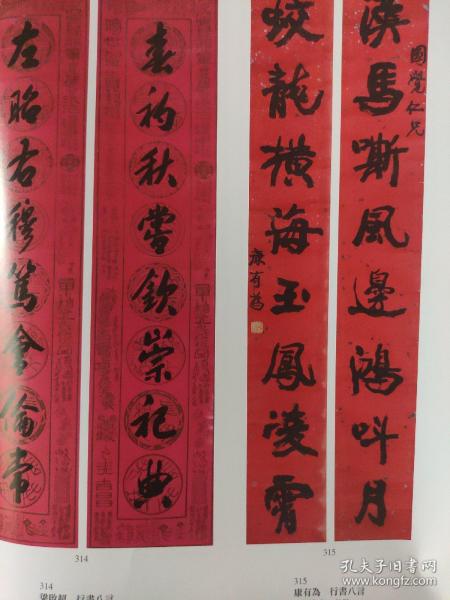 漢馬嘶風邊鴻叫月
國覺仁兄
蛟龍橫海玉鳳凌霄
康有為
春礿秋嘗欽崇祀典
左昭右穆篤會倫常
314
315
314
梁啟超 行書八言
315
康有為 行書八言
孔夫子旧书网